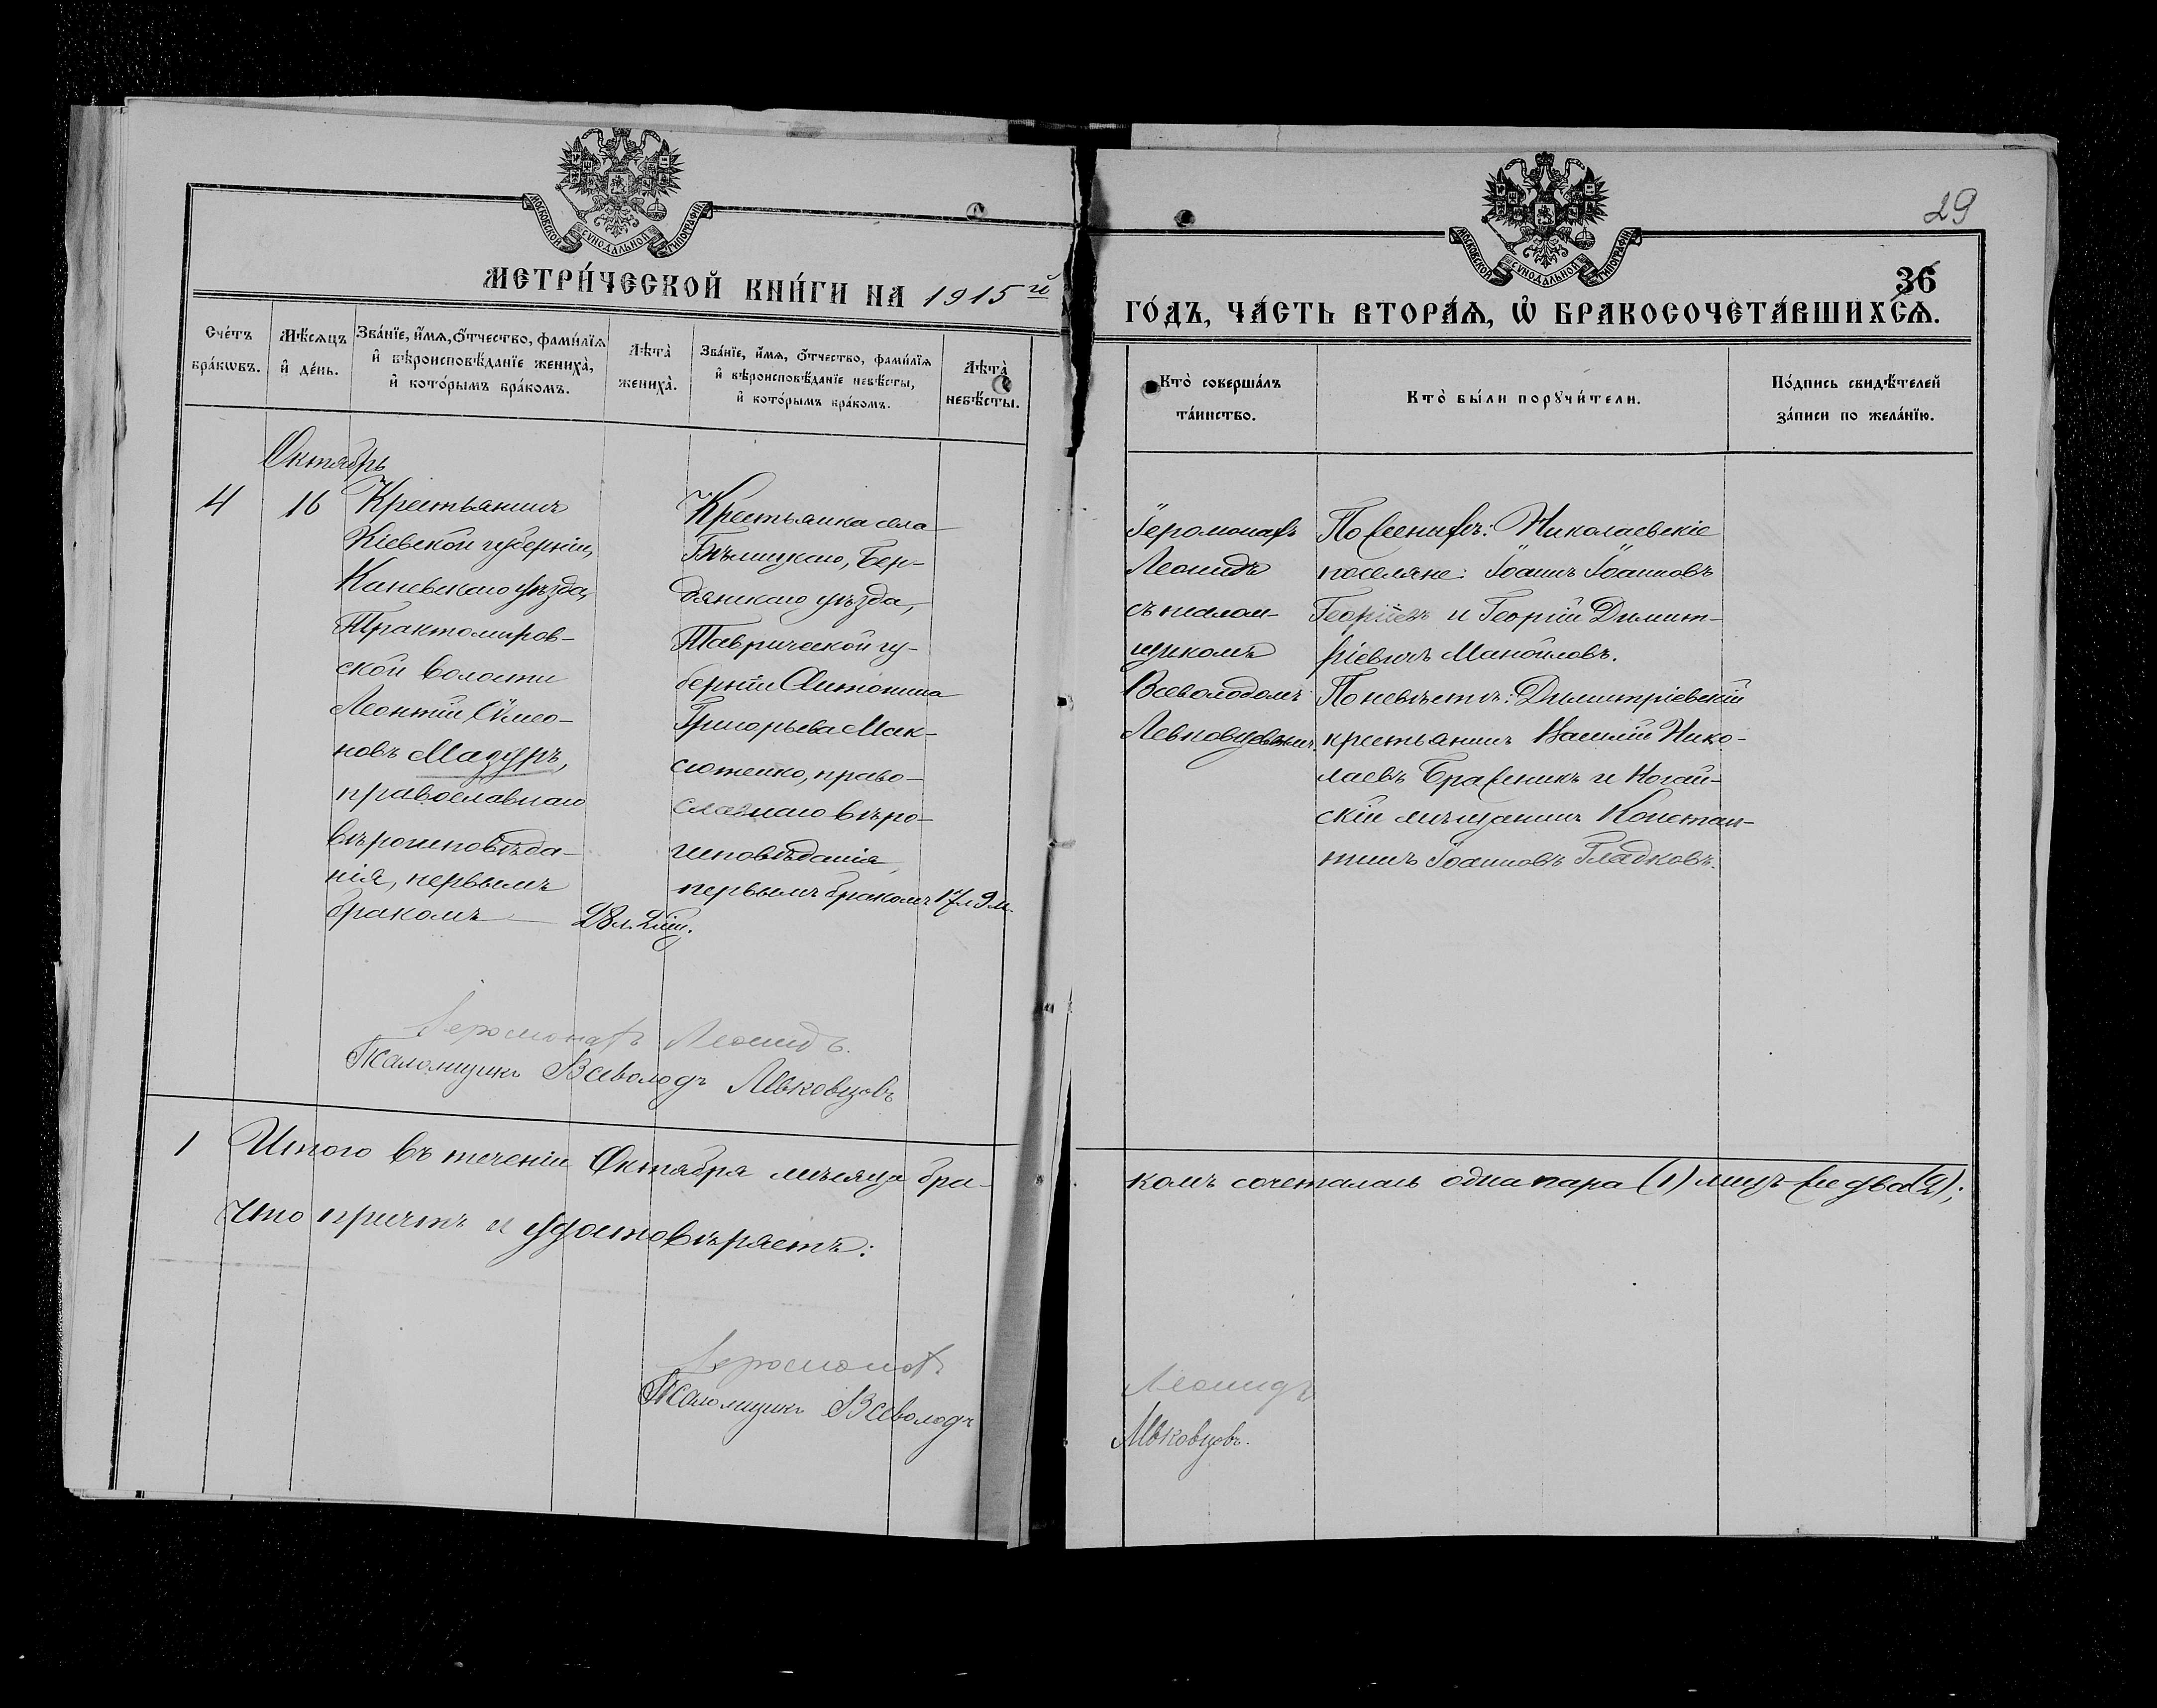 МОСКОВСКОЙ СУНОДАЛЬНОЙ ТИПОГРАФІИ
МЕТРИ́ЧЕСКОЙ КНИ́ГИ НА 1915й
Сче́тъ бра́кѡвъ.
Мѣ́сяцъ и҆ де́нь.
Зва́нїе, и҆́мя, ѻ҆́тчество, фами́лїя
и҆ вѣроисповѣ́данїе жениха̀,
и҆ кото́рымъ бра́комъ.
Лѣта̀ жениха̀.
Зва́нїе, и҆́мя, ѻ҆́тчество, фами́лїя
и҆ вѣроисповѣ́данїе невѣ́сты,
и҆ кото́рымъ бра́комъ.
Лѣта̀ невѣ́сты.
Октябрь
4
16
Крестьянинъ
Кіевской губерніи,
Каневскаго уѣзда,
Трактомиров-
ской волости
Леонтій Сѵмео-
новъ Мазуръ,
православнаго
вѣроисповѣда-
нія, первымъ
бракомъ
28 л.
Крестьянка села
Бер-
дянскаго уѣзда,
Таврической гу-
берніи Антонина
Григорьева Мак-
сютенко, право-
славнаго вѣро-
исповѣданія,
первымъ бракомъ
17 л 9 м.
Іеромонахъ Леонидъ.
Псаломщикъ Всеволодъ Левковцовъ
1
Итого въ теченіи Октября мѣсяца бра-
что причтъ и удостовѣряетъ:
Іеромонахъ
Псаломщикъ Всеволодъ
29
МОСКОВСКОЙ СУНОДАЛЬНОЙ ТИПОГРАФІИ
36
ГО́ДЪ, ЧА́СТЬ ВТОРА́Ѧ, Ѡ҆ БРАКОСОЧЕТА́ВШИХСѦ.
Кто̀ соверша́лъ
та́инство.
Кто̀ бы́ли порꙋчи́тели.
По́дпись свидѣ́телей
за́писи по жела́нїю.
Іеромонахъ
Леонидъ
съ псалом-
щикомъ
Всеволодомъ
Левковцовымъ.
По женихѣ: Николаевскіе
поселяне: Іоаннъ Іоанновъ
Георгіевъ и Георгій Димит-
ріевичъ Манойловъ.
По невѣстѣ: Димитріевскій
крестьянинъ Василій Нико-
лаевъ Бражникъ и Ногай-
скій мѣщанинъ Констан-
тинъ Іоанновъ Гладковъ.
комъ сочеталась одна пара (1) лицъ же два (2);
Леонидъ
Левковцовъ.